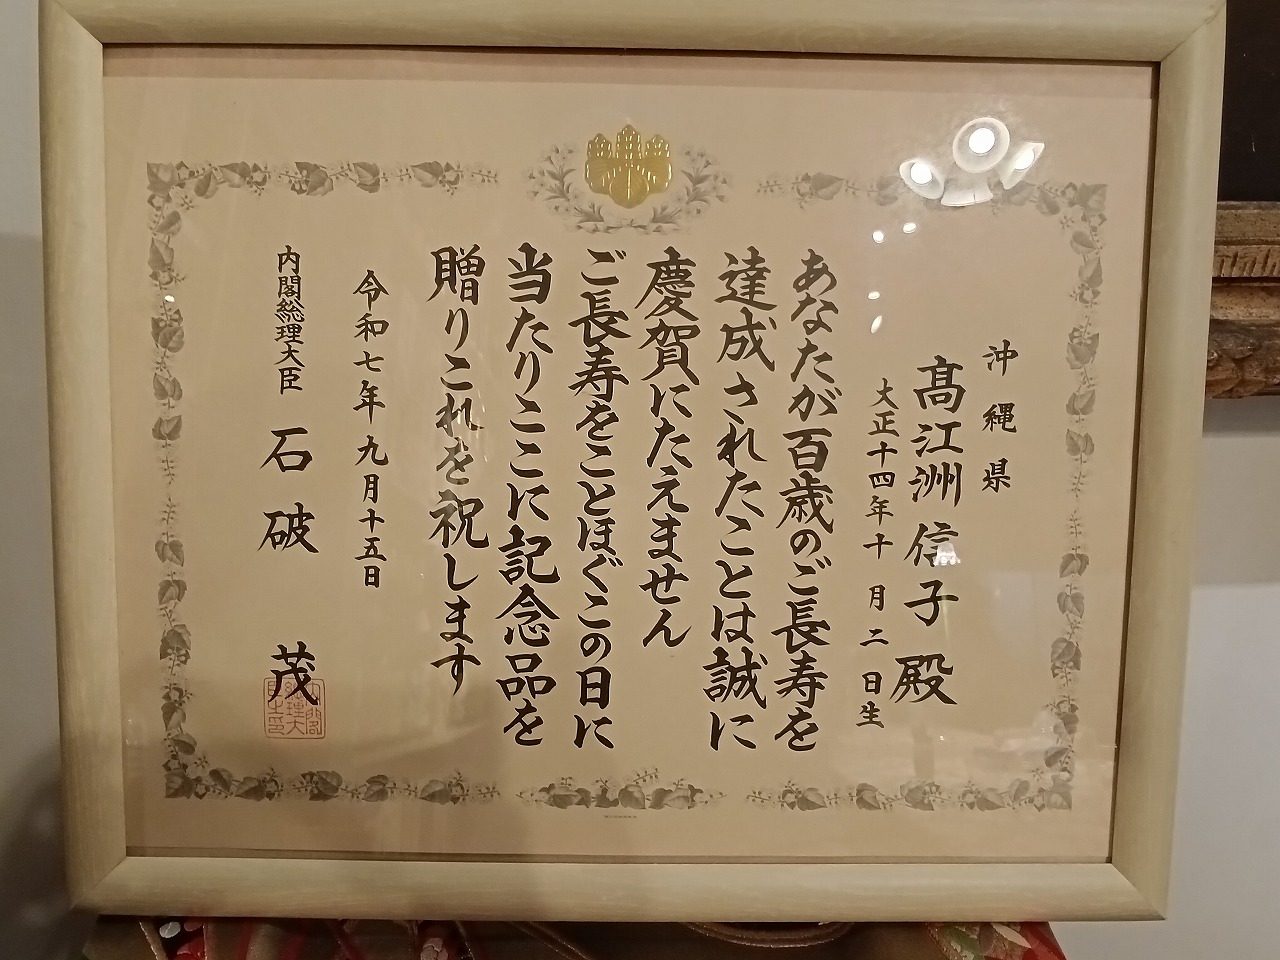 沖縄県
髙江洲信子殿
大正十四年十月二日生
あなたが百歳のご長寿を
達成されたことは誠に
慶賀にたえません
ご長寿をことほぐこの日に
当たりここに記念品を
贈りこれを祝します
令和七年九月十五日
内閣総理大臣 石破 茂
内閣総理大臣印